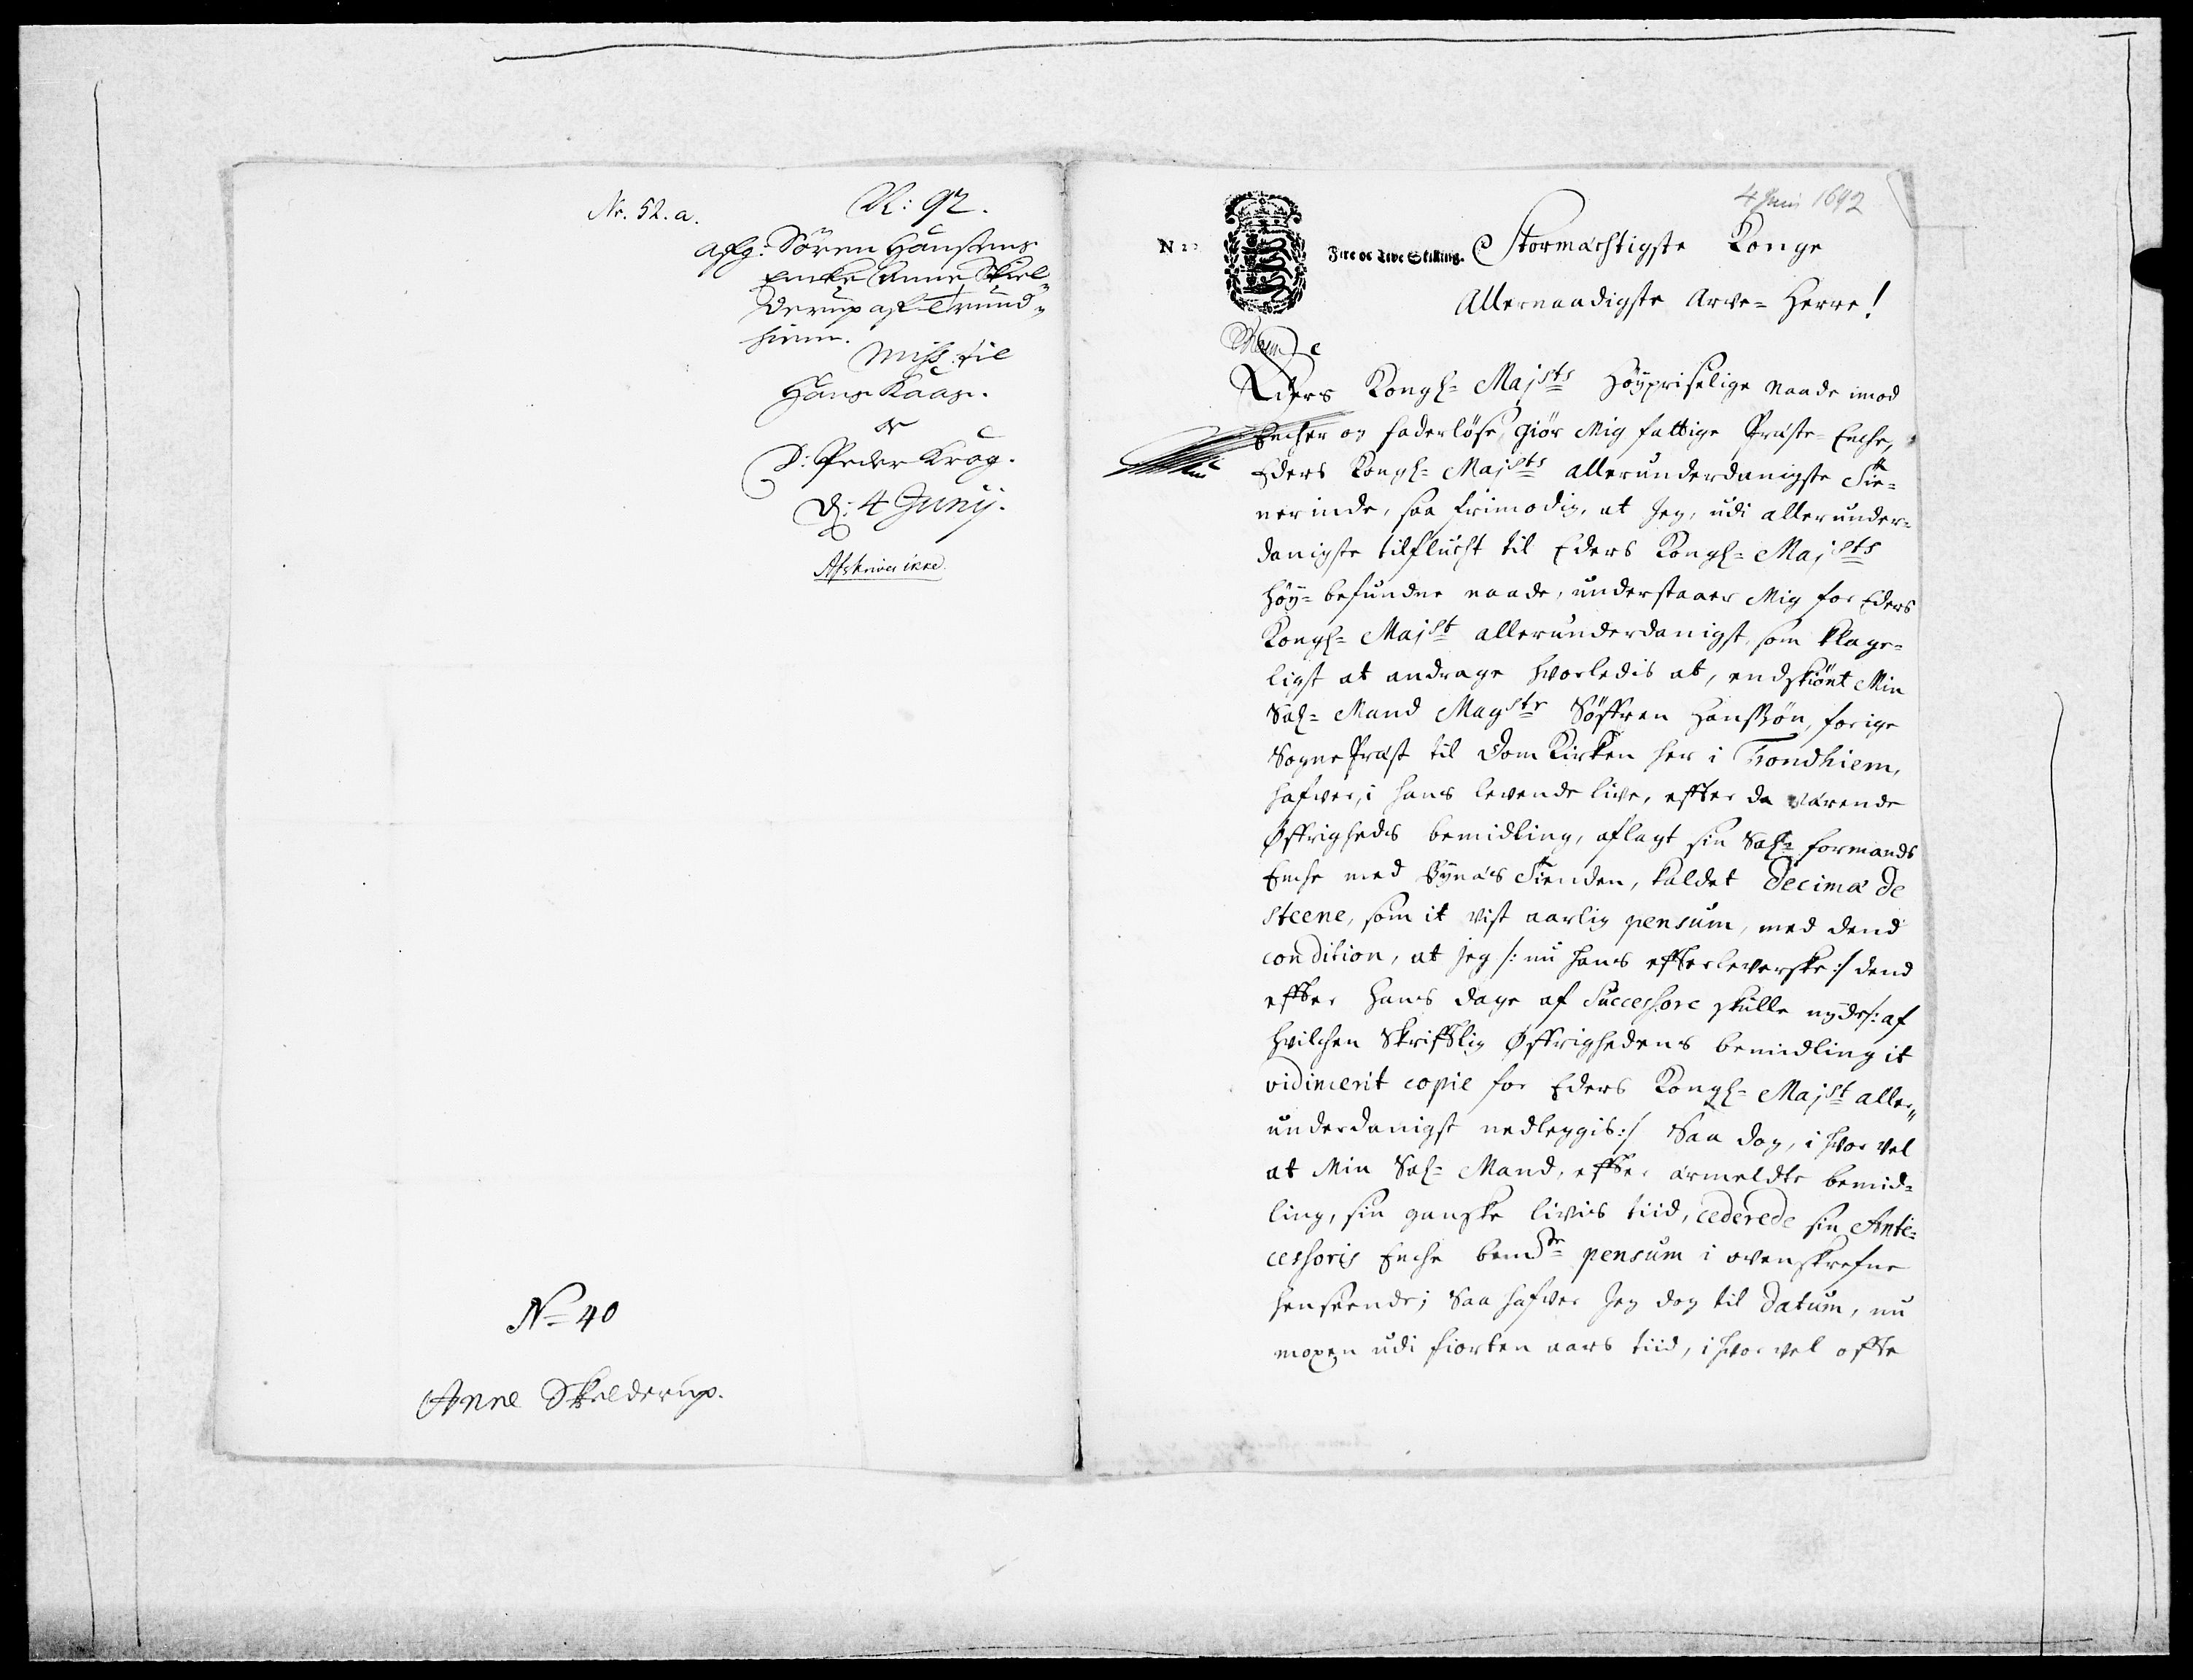 Nr. 52. a.
N: 92.
afg: Sören Hansens
Encke Anne Skiel¬
derup af Trund¬
hiem.
Miss. til
Hans Kaas.
&
D: Peder Krog.
D: 4 Junij.
Afskrives ikke.
No 40
Anne Skielderup.
4 Juni 1692
N 2
Fire oc Tive Skilling.
Stormæchtigste Konge
Allernaadigste Arve= Herre!
Eders Kongl= Majsts Høypriselige Naade imod
Encher og faderløse, giør Mig fattige Præste= Enche,
Eders Kongl= Majsts allerunderdanigste Tie=
nerinde, saa frimodig, at Jeg, udi allerunder=
danigste tilflucht til Eders Kongl= Majsts
Høy= befundne naade, understaaer Mig for Eders
Kongl= Majst allerunderdanigst, som klage=
ligst at andrage hvorledis at, endskiönt Min
Sal= Mand Magstr Söffren Hanssön, forige
Sogne Præst til Dom Kirken her i Trondhiem,
hafver, i hans levende live, efter da værende
Øffrigheds bemidling, aflagt sin Sal= formands
Enche med Bynæs Tienden, kaldet Decimæ de
Steene, som it vist aarlig pensum, med dend
condition, at jeg /: nu hans efterleverske :/ dend
efter hans dage af Successore skulle nyde /: af
hvilchen Skriftlig Øffrighedens bemidling it
vidimerit copie for Eders Kongl= Majst aller„
underdanigst nedleggis :/ Saa dog, i hvor vel
at Min Sal= Mand, efter ærmeldte bemid=
ling, sin ganske livis tiid, cederede sin Ante=
cessoris Enche bemdte pensum i ovenskrefne
henseende; Saa hafver Jeg dog til datum, nu
moxen udi fiorten aars tiid, i hvor vel offte